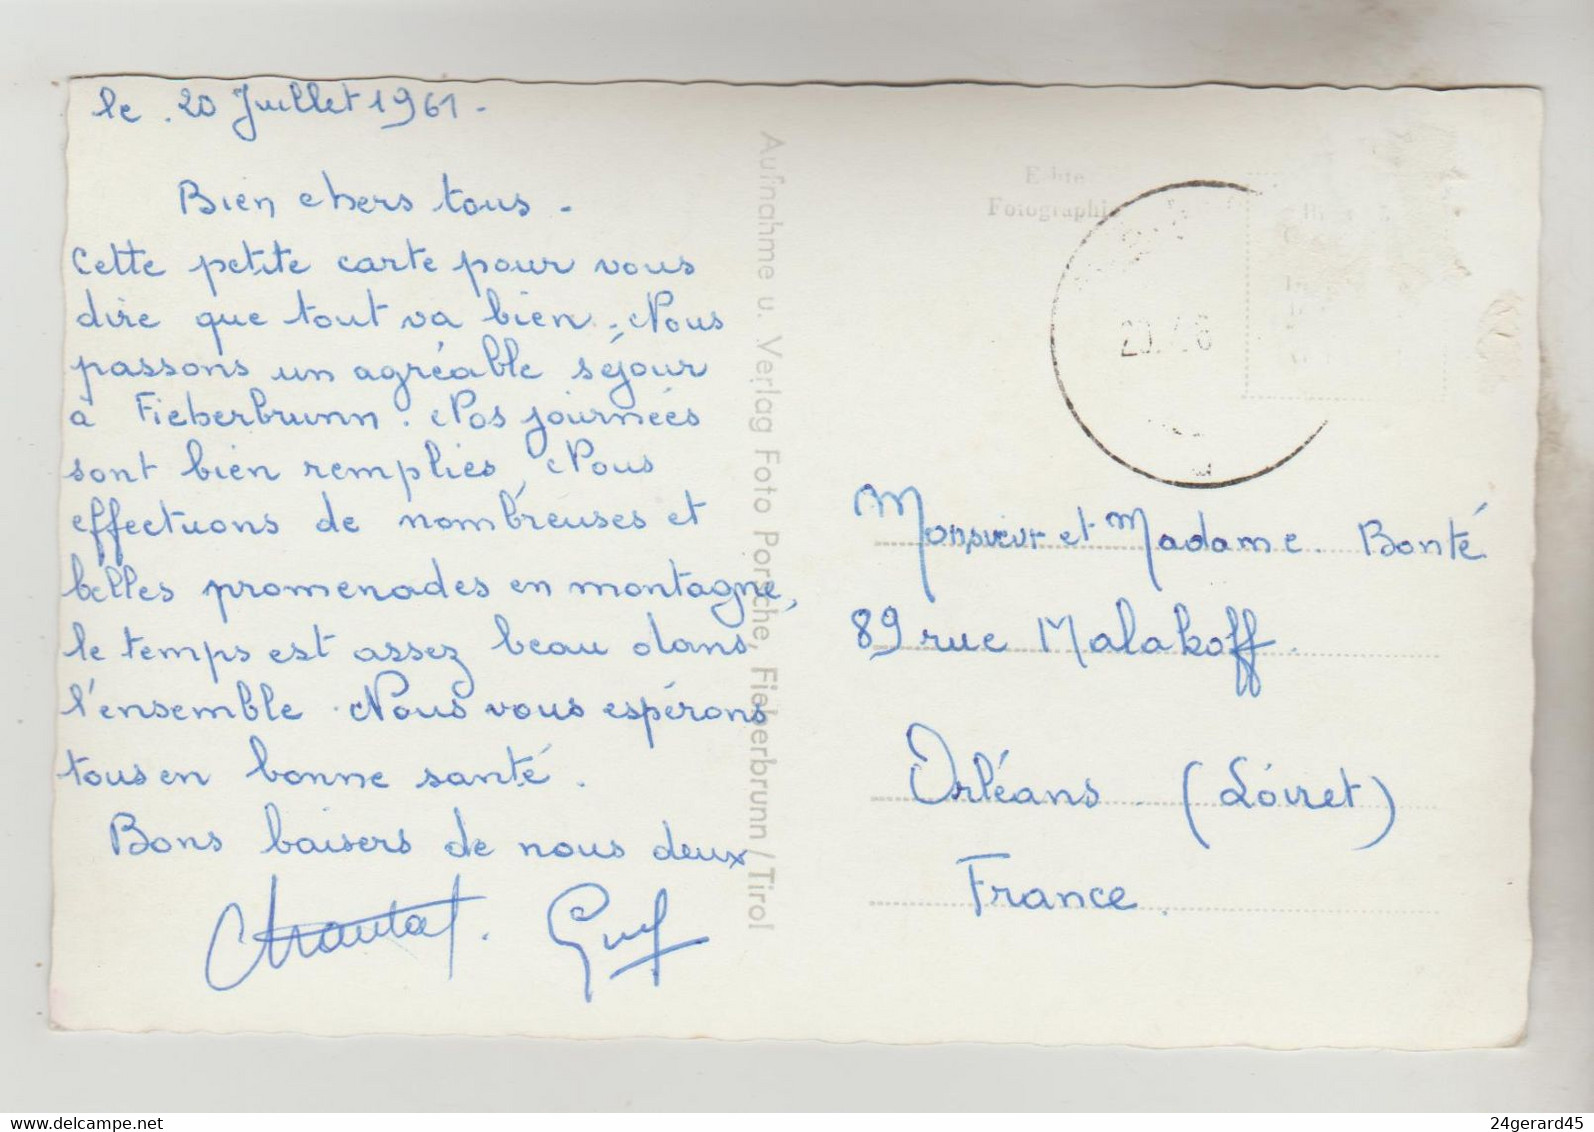 le . 20 Juillet 1961 -
Bien chers tous -
Cette petite carte pour vous
dire que tout va bien. Nous
passons un agréable séjour
à Fieberbrunn. Nos journées
sont bien remplies, Nous
effectuons de nombreuses et
belles promenades en montagne,
le temps est assez beau dans
l'ensemble. Nous vous espérons
tous en bonne santé.
Bons baisers de nous deux
Chantal.
Aufnahme u. Verlag Foto Porsche, Fieberbrunn / Tirol
Echte
Fotographie
Monsieur et Madame Bonté
89 rue Malakoff.
Orléans (Loiret)
France.
delcampe.net
24gerard45